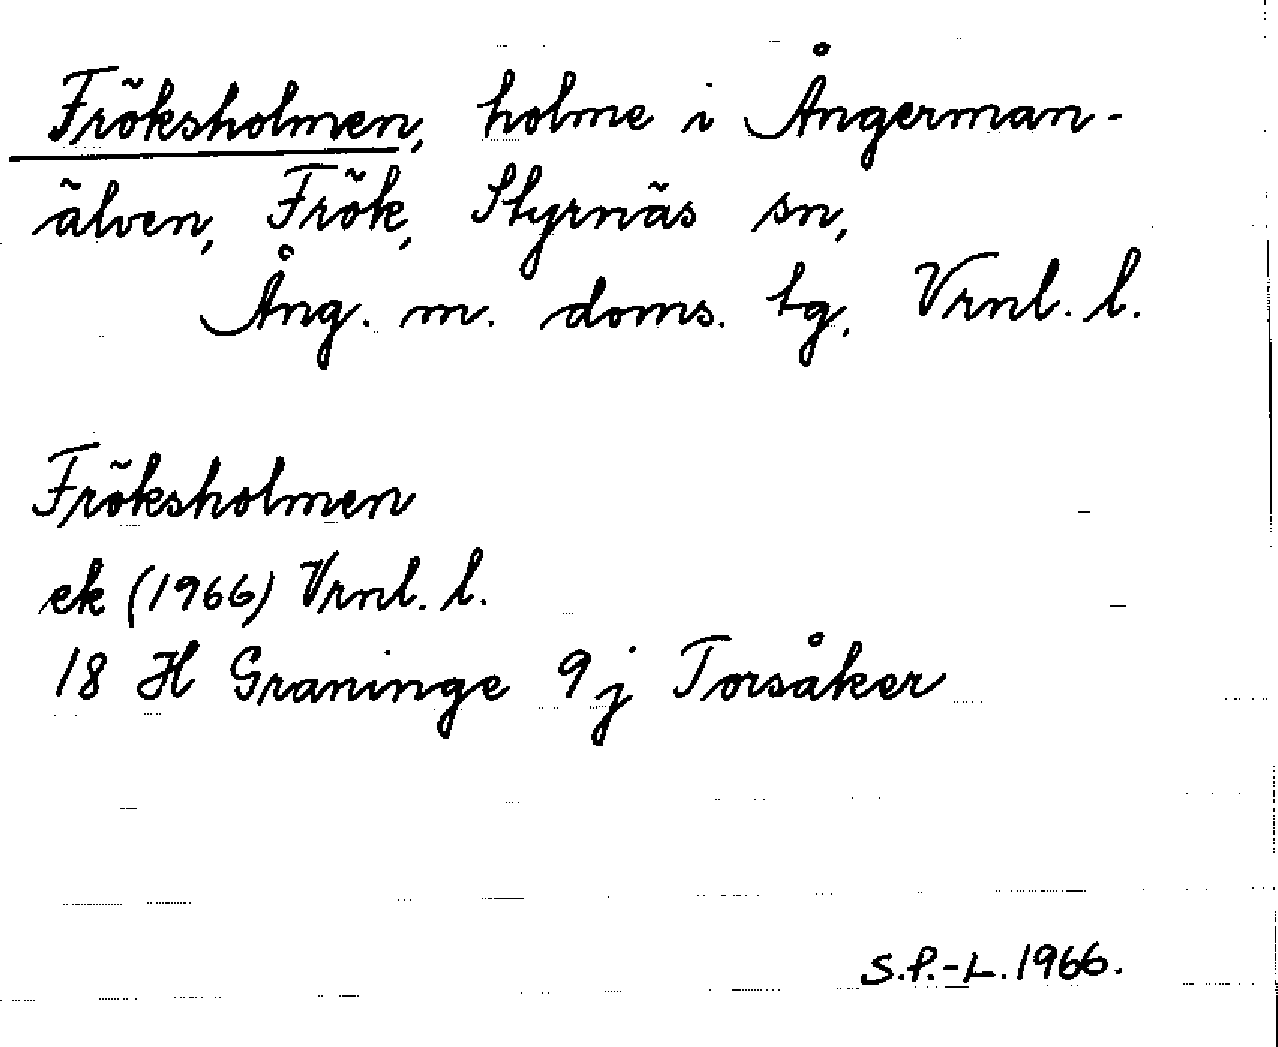 Fröksholmen, holme i Ångerman-
älven, Frök, Styrnäs sn,
Ång. m. doms. tg, Vrnl. l.
Fröksholmen
ek (1966) Vrnl. l.
18 H Graninge 9j Torsåker
S.P.-L. 1966.